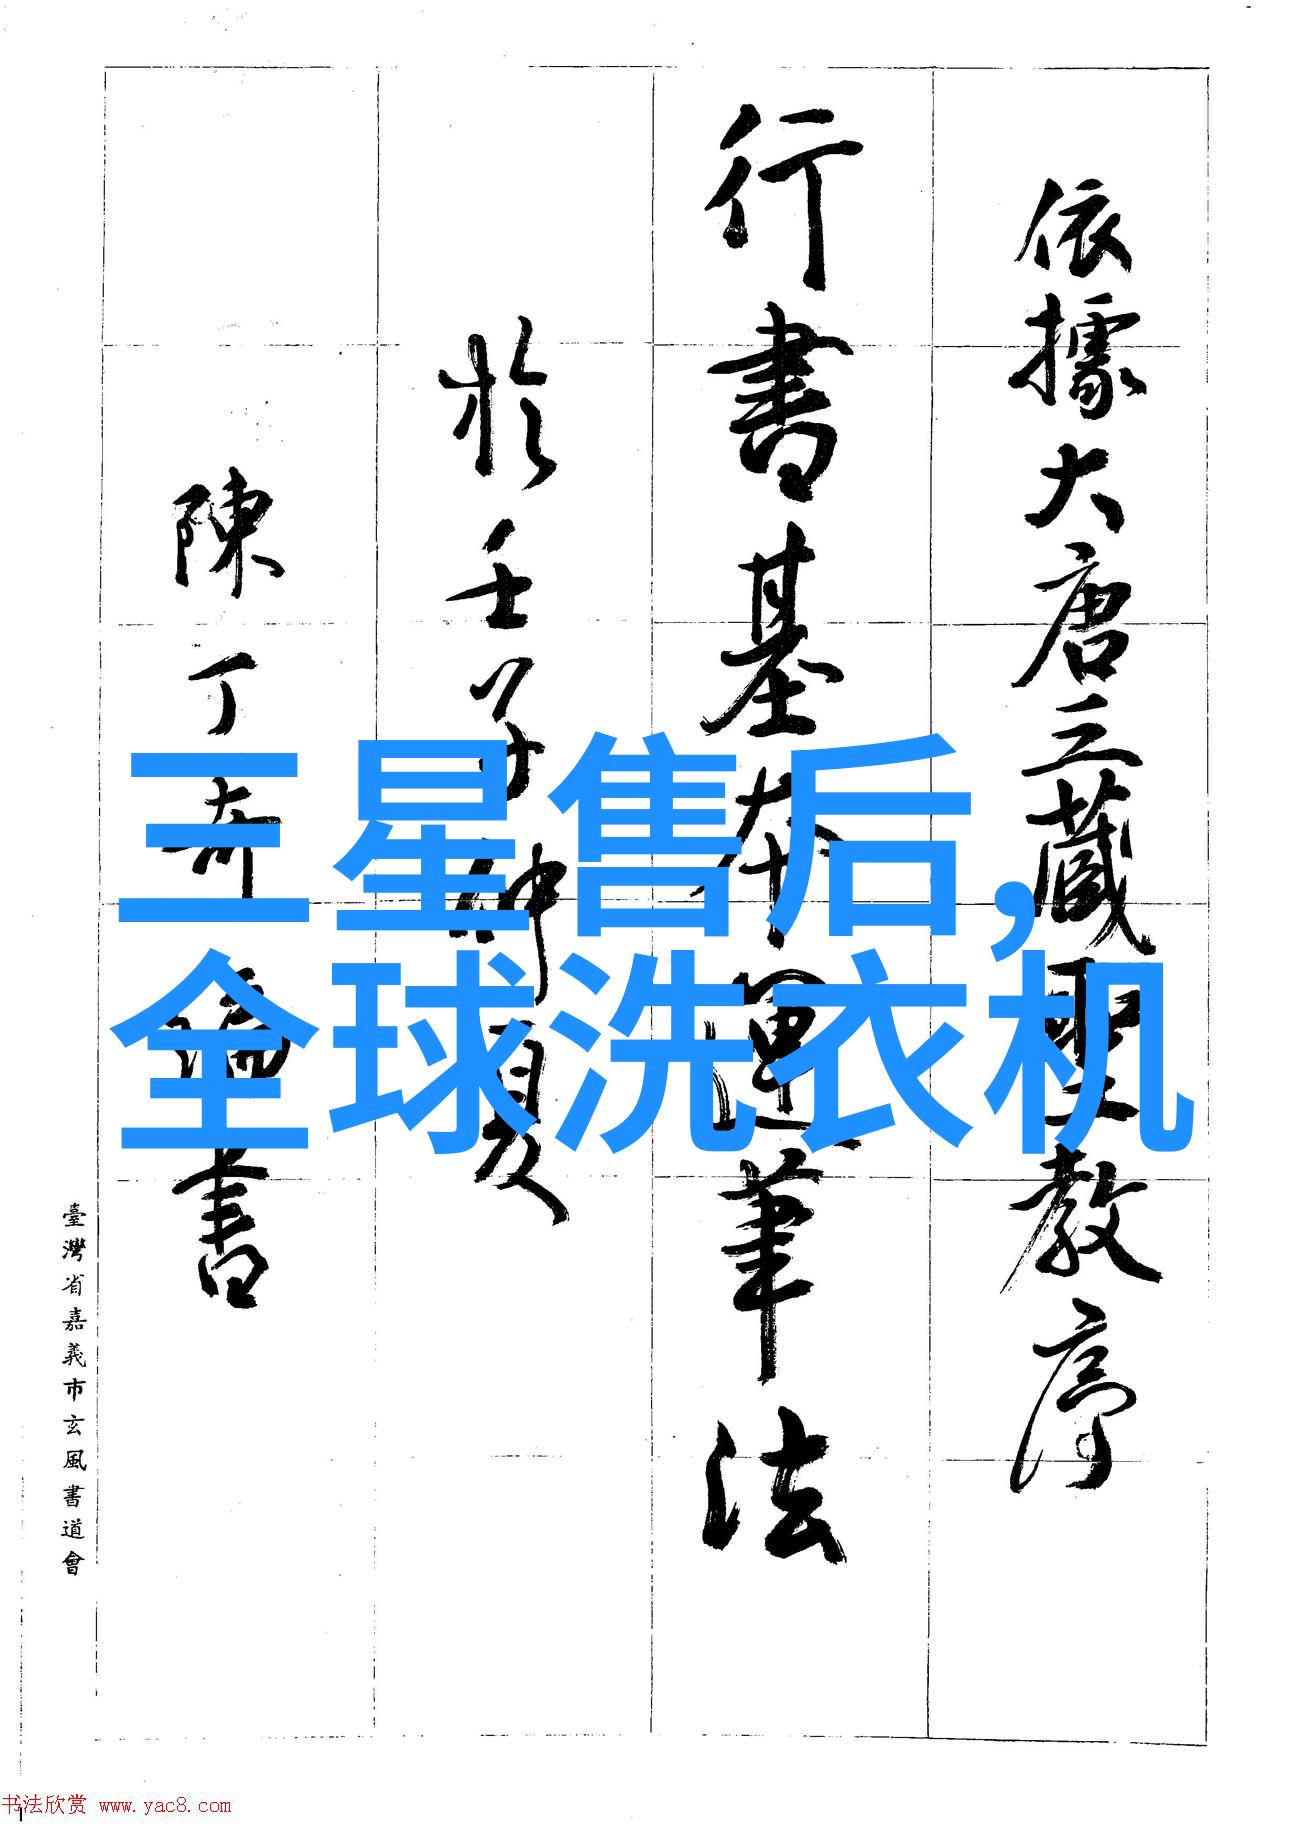 依據大唐三藏聖教序
行書基本運筆法
於壬子仲夏
陳丁奇編書
臺灣省嘉義市玄風書道會
三星售后,
全球洗衣机
书法欣赏 www.yac8.com